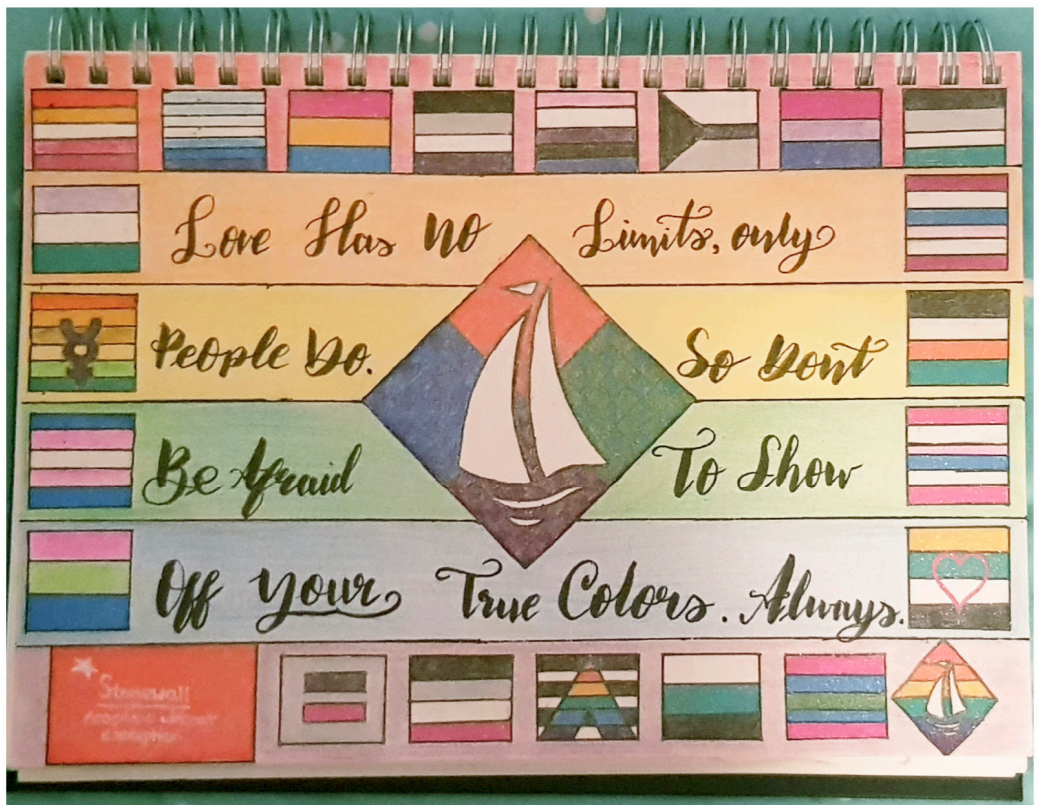 Love Has no Limits, only
People Do. So Dont
Be Afraid To Show
Off your True Colors. Always.
Stonewall